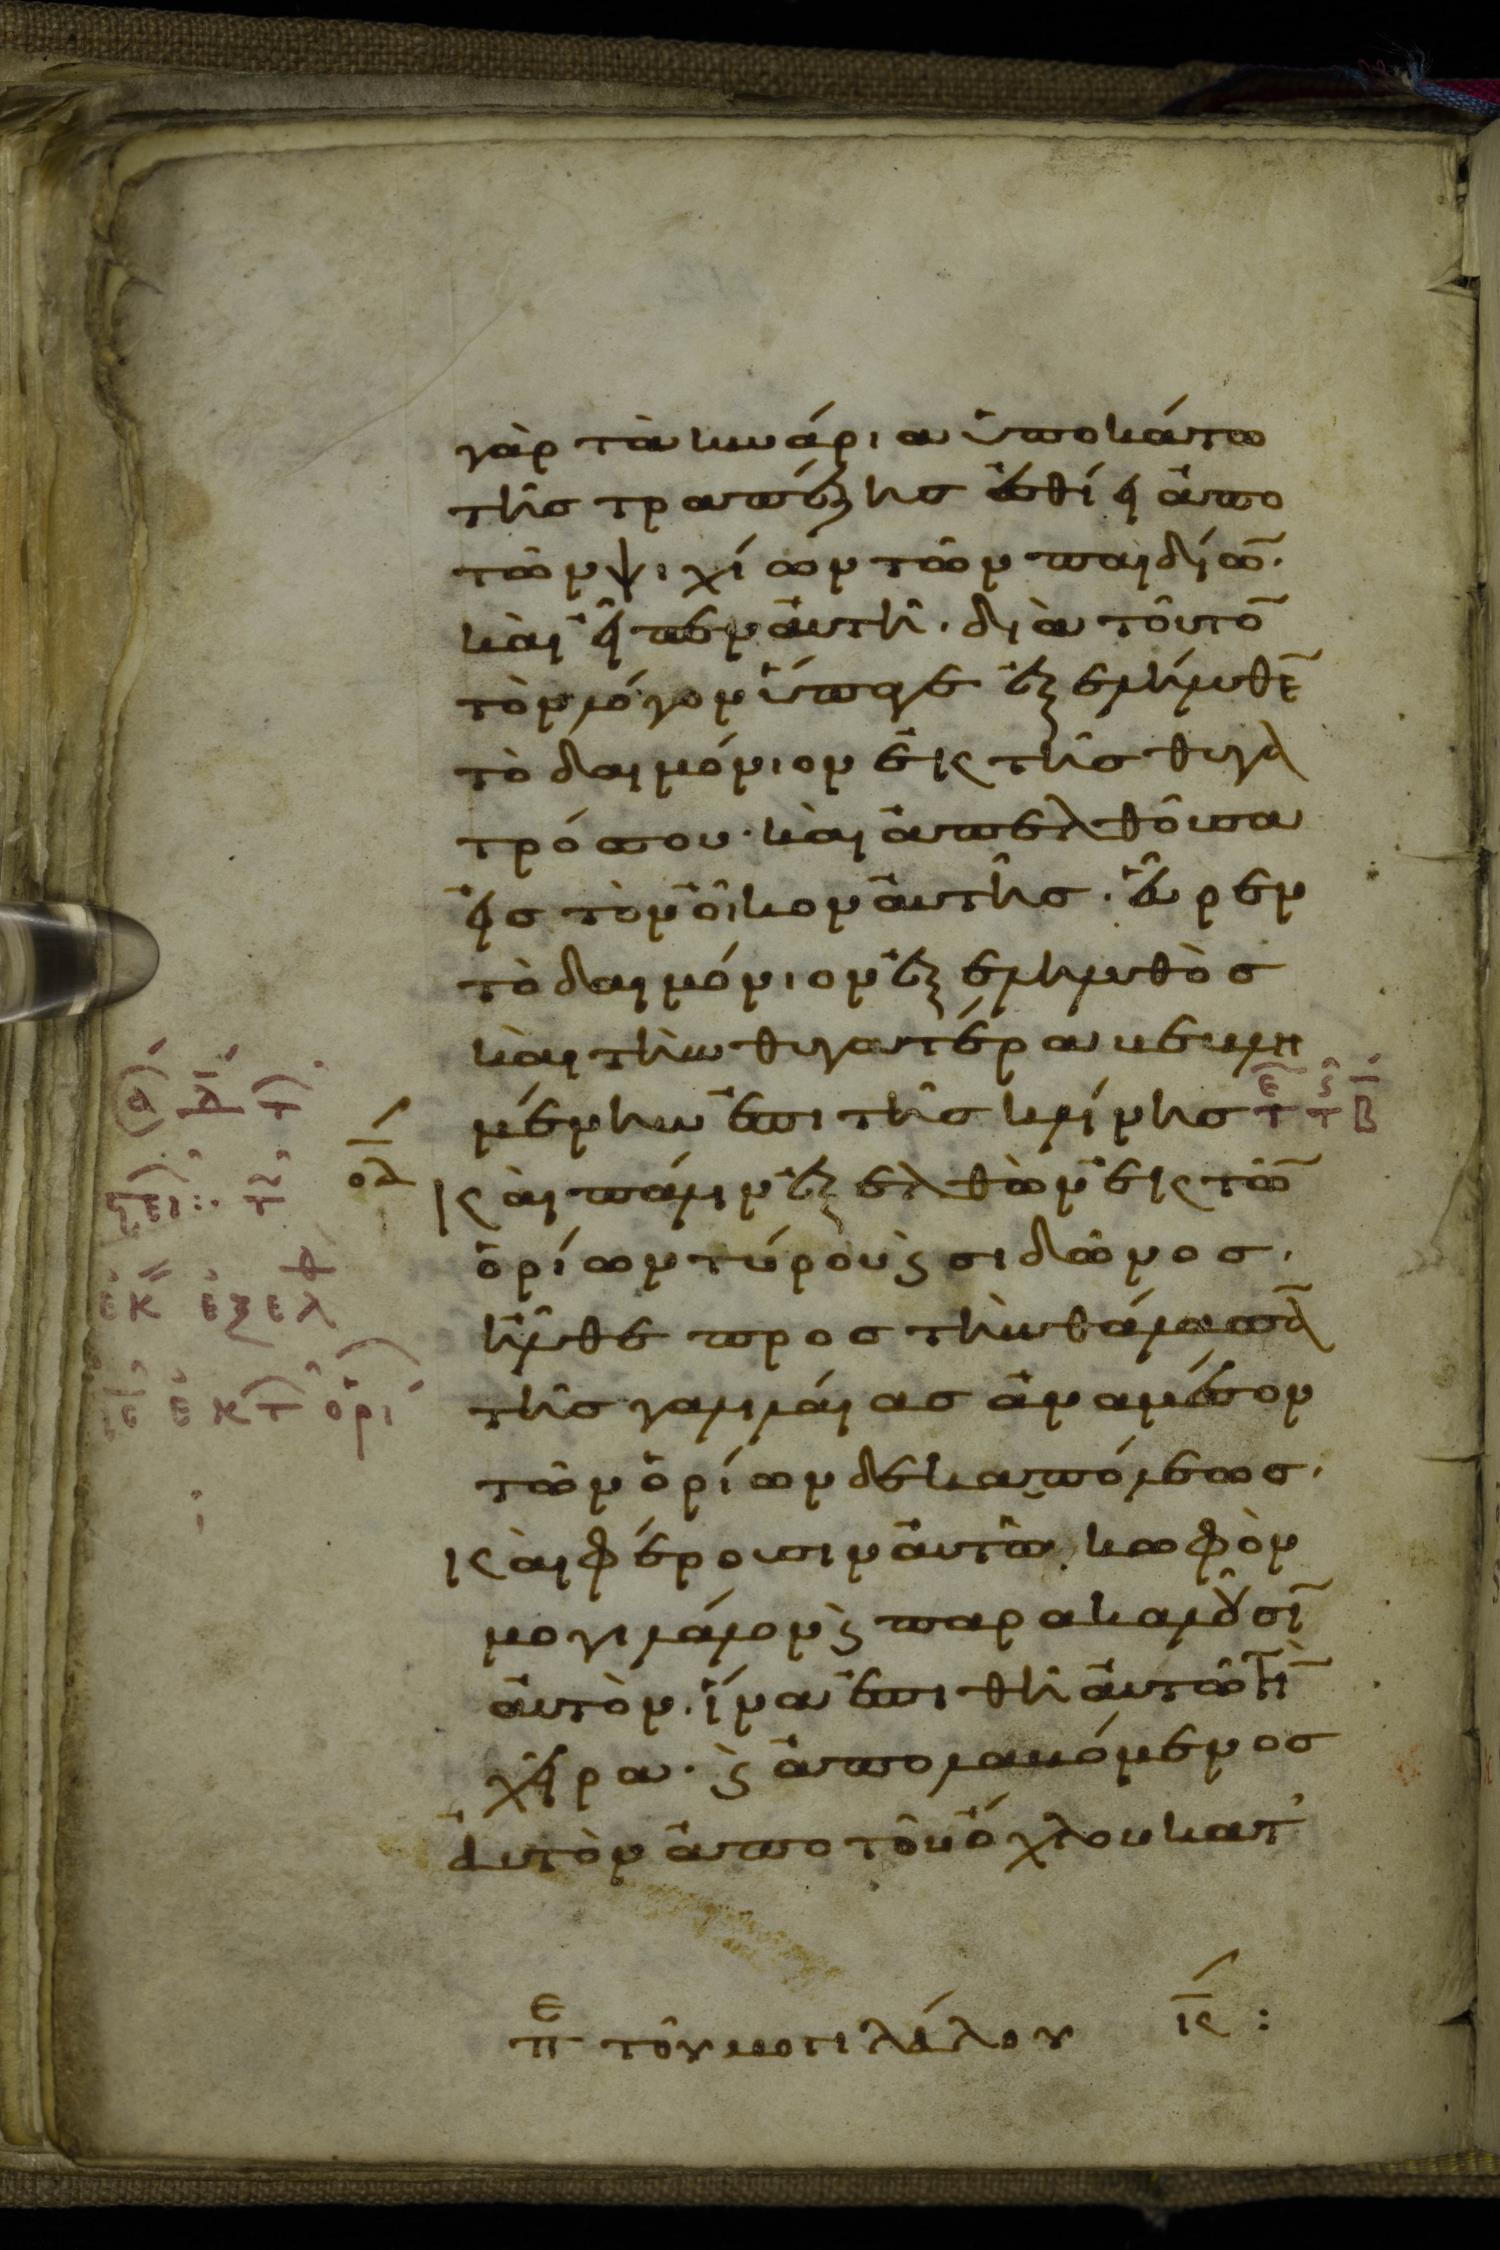 γὰρ τὰ κυνάρια ὑποκάτω
τῆς τραπέζης ἐσθίει ἀπο
τῶν ψιχίων τῶν παιδίω̃.
καὶ εἶπεν αὐτῆ. διὰ τοῦτο̃
τὸν λόγον ὕπαγε ἐξελήλυθε̃
τὸ δαιμόνιον ἐκ τῆς θυγα
τρός σου. καὶ ἀπελθοῦσα
εἰς τὸν οἶκον αὐτῆς. εὗρεν
τὸ δαιμόνιον ἐξεληλυθὸς
καὶ τὴν θυγατέρα κειμη
μένην ἐπι τῆς κλίνης
οδ
Καὶ πάλιν ἐξελθὼν ἐκ τῶ̃
ὁρίων τύρου ϗ σιδῶνος.
ἦλθε προς τὴν θάλασσα̃
τῆς γαλιλαίας ἀναμέσον
τῶν ὁρίων δεκαπόλεως.
Καὶ φέρουσιν αὐτῶ κωφὸν
μογιλάλον ϗ παρακαλοῦσι̃
αὐτὸν. ἵνα ἐπιθῆ αὐτῶ τὴ̃
χεῖρα. ϗ ἀπολαβόμενος
Αὐτὸν ἀπο τοῦ ὄχλου κατ'
πε τοῦ μογιλάλου ις :